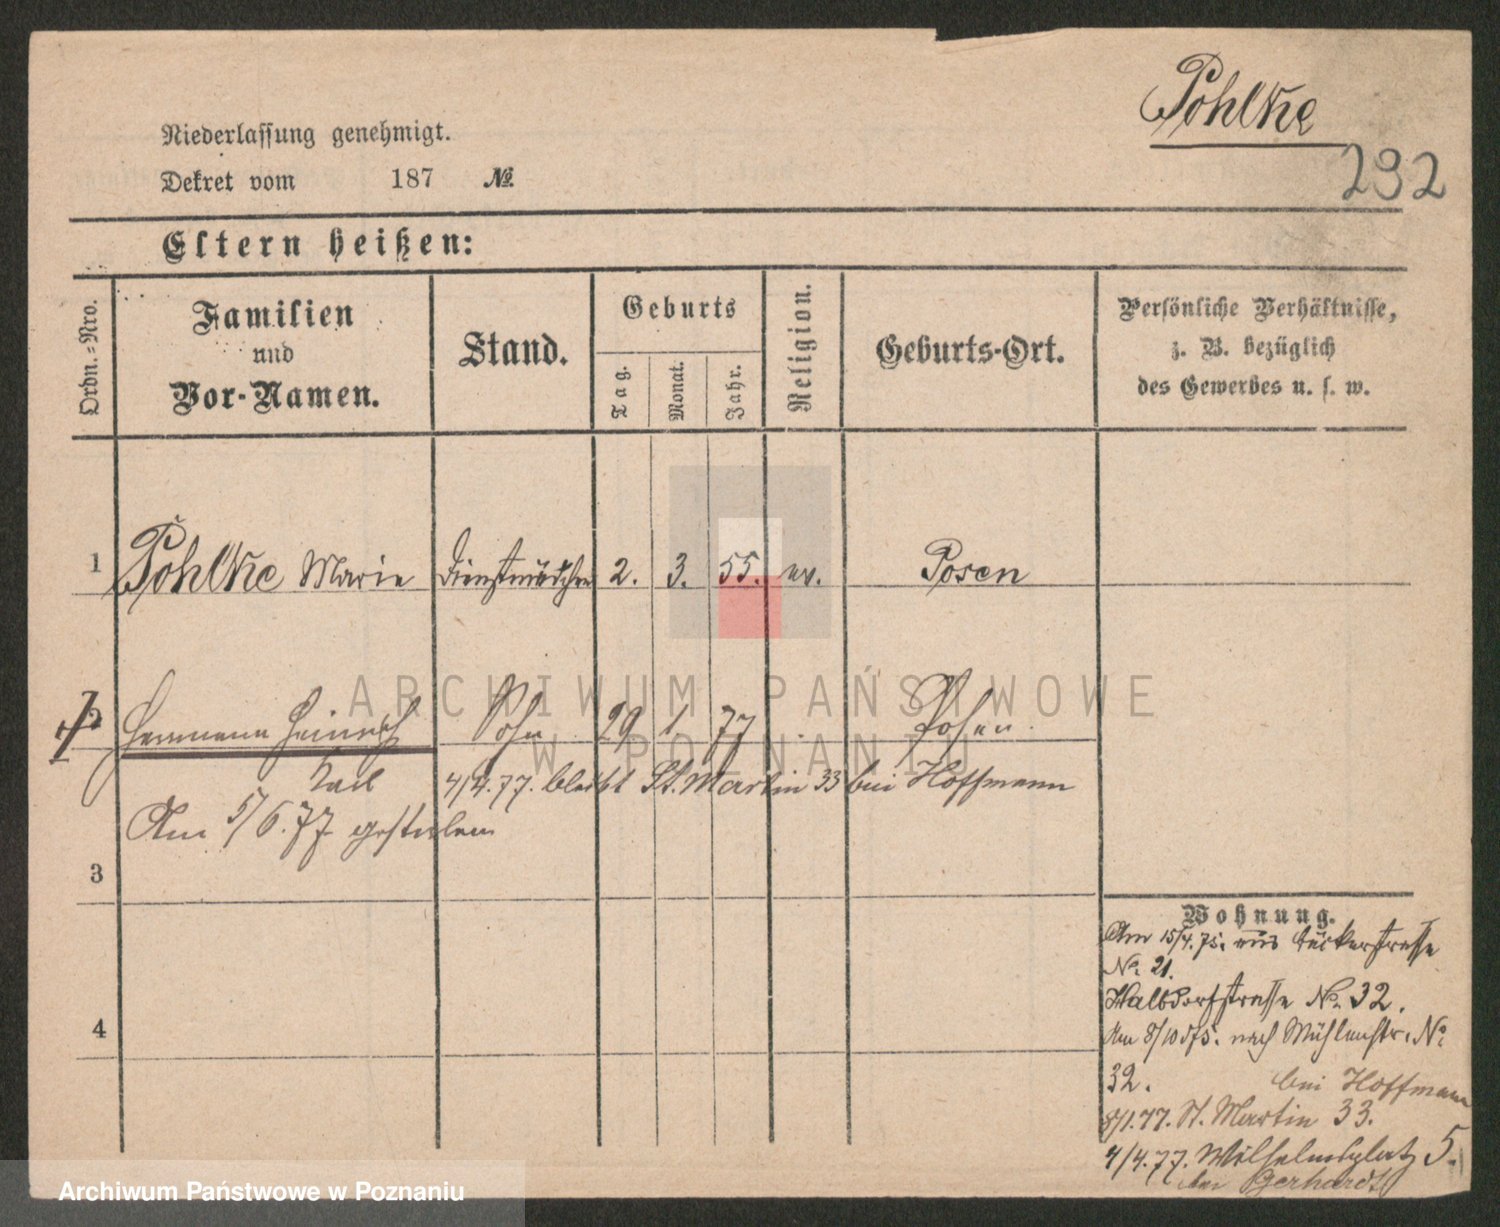 Pohlke
292
Niederlassung genehmigt.
Dekret vom 187 №
Eltern heißen:
Ordn.-Nro.
Familien
und
Vor-Namen.
Stand.
Geburts
Tag.
Monat.
Jahr.
Religion.
Geburts-Ort.
Persönliche Verhältnisse,
z. B. bezüglich
des Gewerbes u. s. w.
1 Pohlke Marie Dienstmädchen 2. 3. 55. ev. Posen
ARCHIWUM PAŃSTWOWE
W POZNANIU
2 Hermann Heinrich Sohn 29 1 77 Posen.
Karl 4/4.77. bleibt St. Martin 33 bei Hoffmann
Am 5/6.77 gestorben
3
4
Wohnung.
Am 15/4.75. aus
No 21.
Halbdorfstrasse No. 32.
Am 8/10 d75. nach Mühlenstr. No
32. bei Hoffmann
8/1.77. St. Martin 33.
4/4.77. Wilhelmsplatz 5.
bei Gerhardt
Archiwum Państwowe w Poznaniu